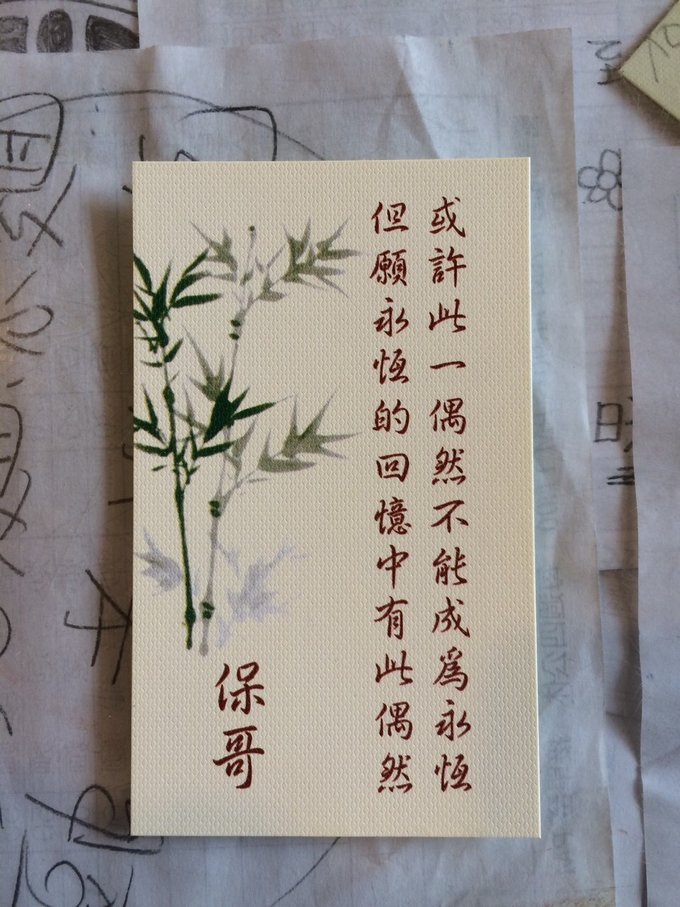 或許此一偶然不能成爲永恆
但願永恆的回憶中有此偶然
保哥